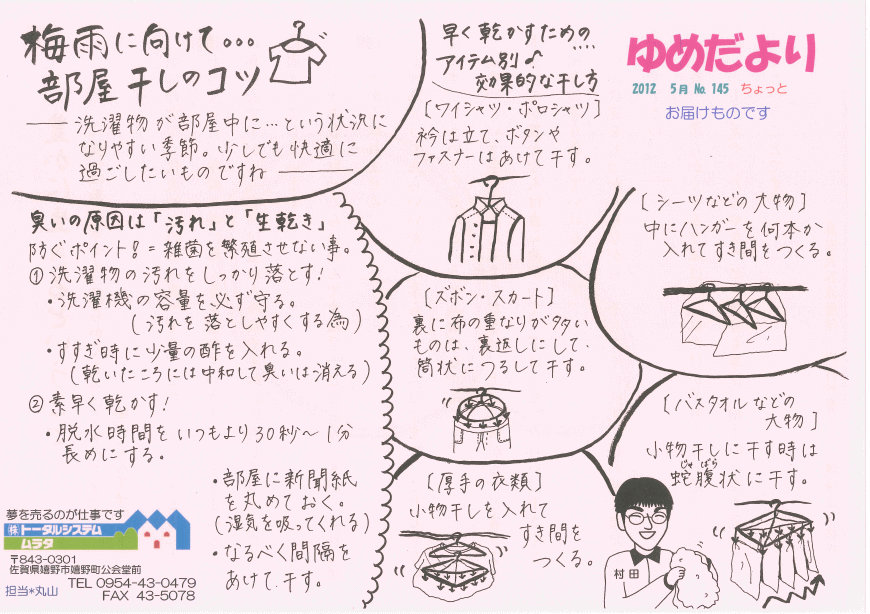 梅雨に向けて...
部屋干しのコツ
― 洗濯物が部屋中に…という状況に
なりやすい季節。少しでも快適に
過ごしたいものですね ―
早く乾かすための
アイテム別♪
効果的な干し方
〔ワイシャツ・ポロシャツ〕
衿は立て、ボタンや
ファスナーはあけて干す。
ゆめだより
2012 5月 No.145 ちょっと
お届けものです
臭いの原因は「汚れ」と「生乾き」
防ぐポイント!=雑菌を繁殖させない事。
①洗濯物の汚れをしっかり落とす!
・洗濯機の容量を必ず守る。
(汚れを落としやすくする為)
・すすぎ時に少量の酢を入れる。
(乾いたころには中和して臭いは消える)
②素早く乾かす!
・脱水時間をいつもより30秒~1分
長めにする。
・部屋に新聞紙
を丸めておく。
(湿気を吸ってくれる)
・なるべく間隔を
あけて干す。
〔ズボン・スカート〕
裏に布の重なりが多い
ものは、裏返しにして、
筒状につるして干す。
〔シーツなどの大物〕
中にハンガーを何本か
入れてすき間をつくる。
〔厚手の衣類〕
小物干しを入れて
すき間を
つくる。
〔バスタオルなどの
大物〕
小物干しに干す時は
じゃばら
蛇腹状に干す。
村田
夢を売るのが仕事です
㈱トータルシステム
ムラタ
〒843-0301
佐賀県嬉野市嬉野町公会堂前
TEL 0954-43-0479
FAX 43-5078
担当*丸山